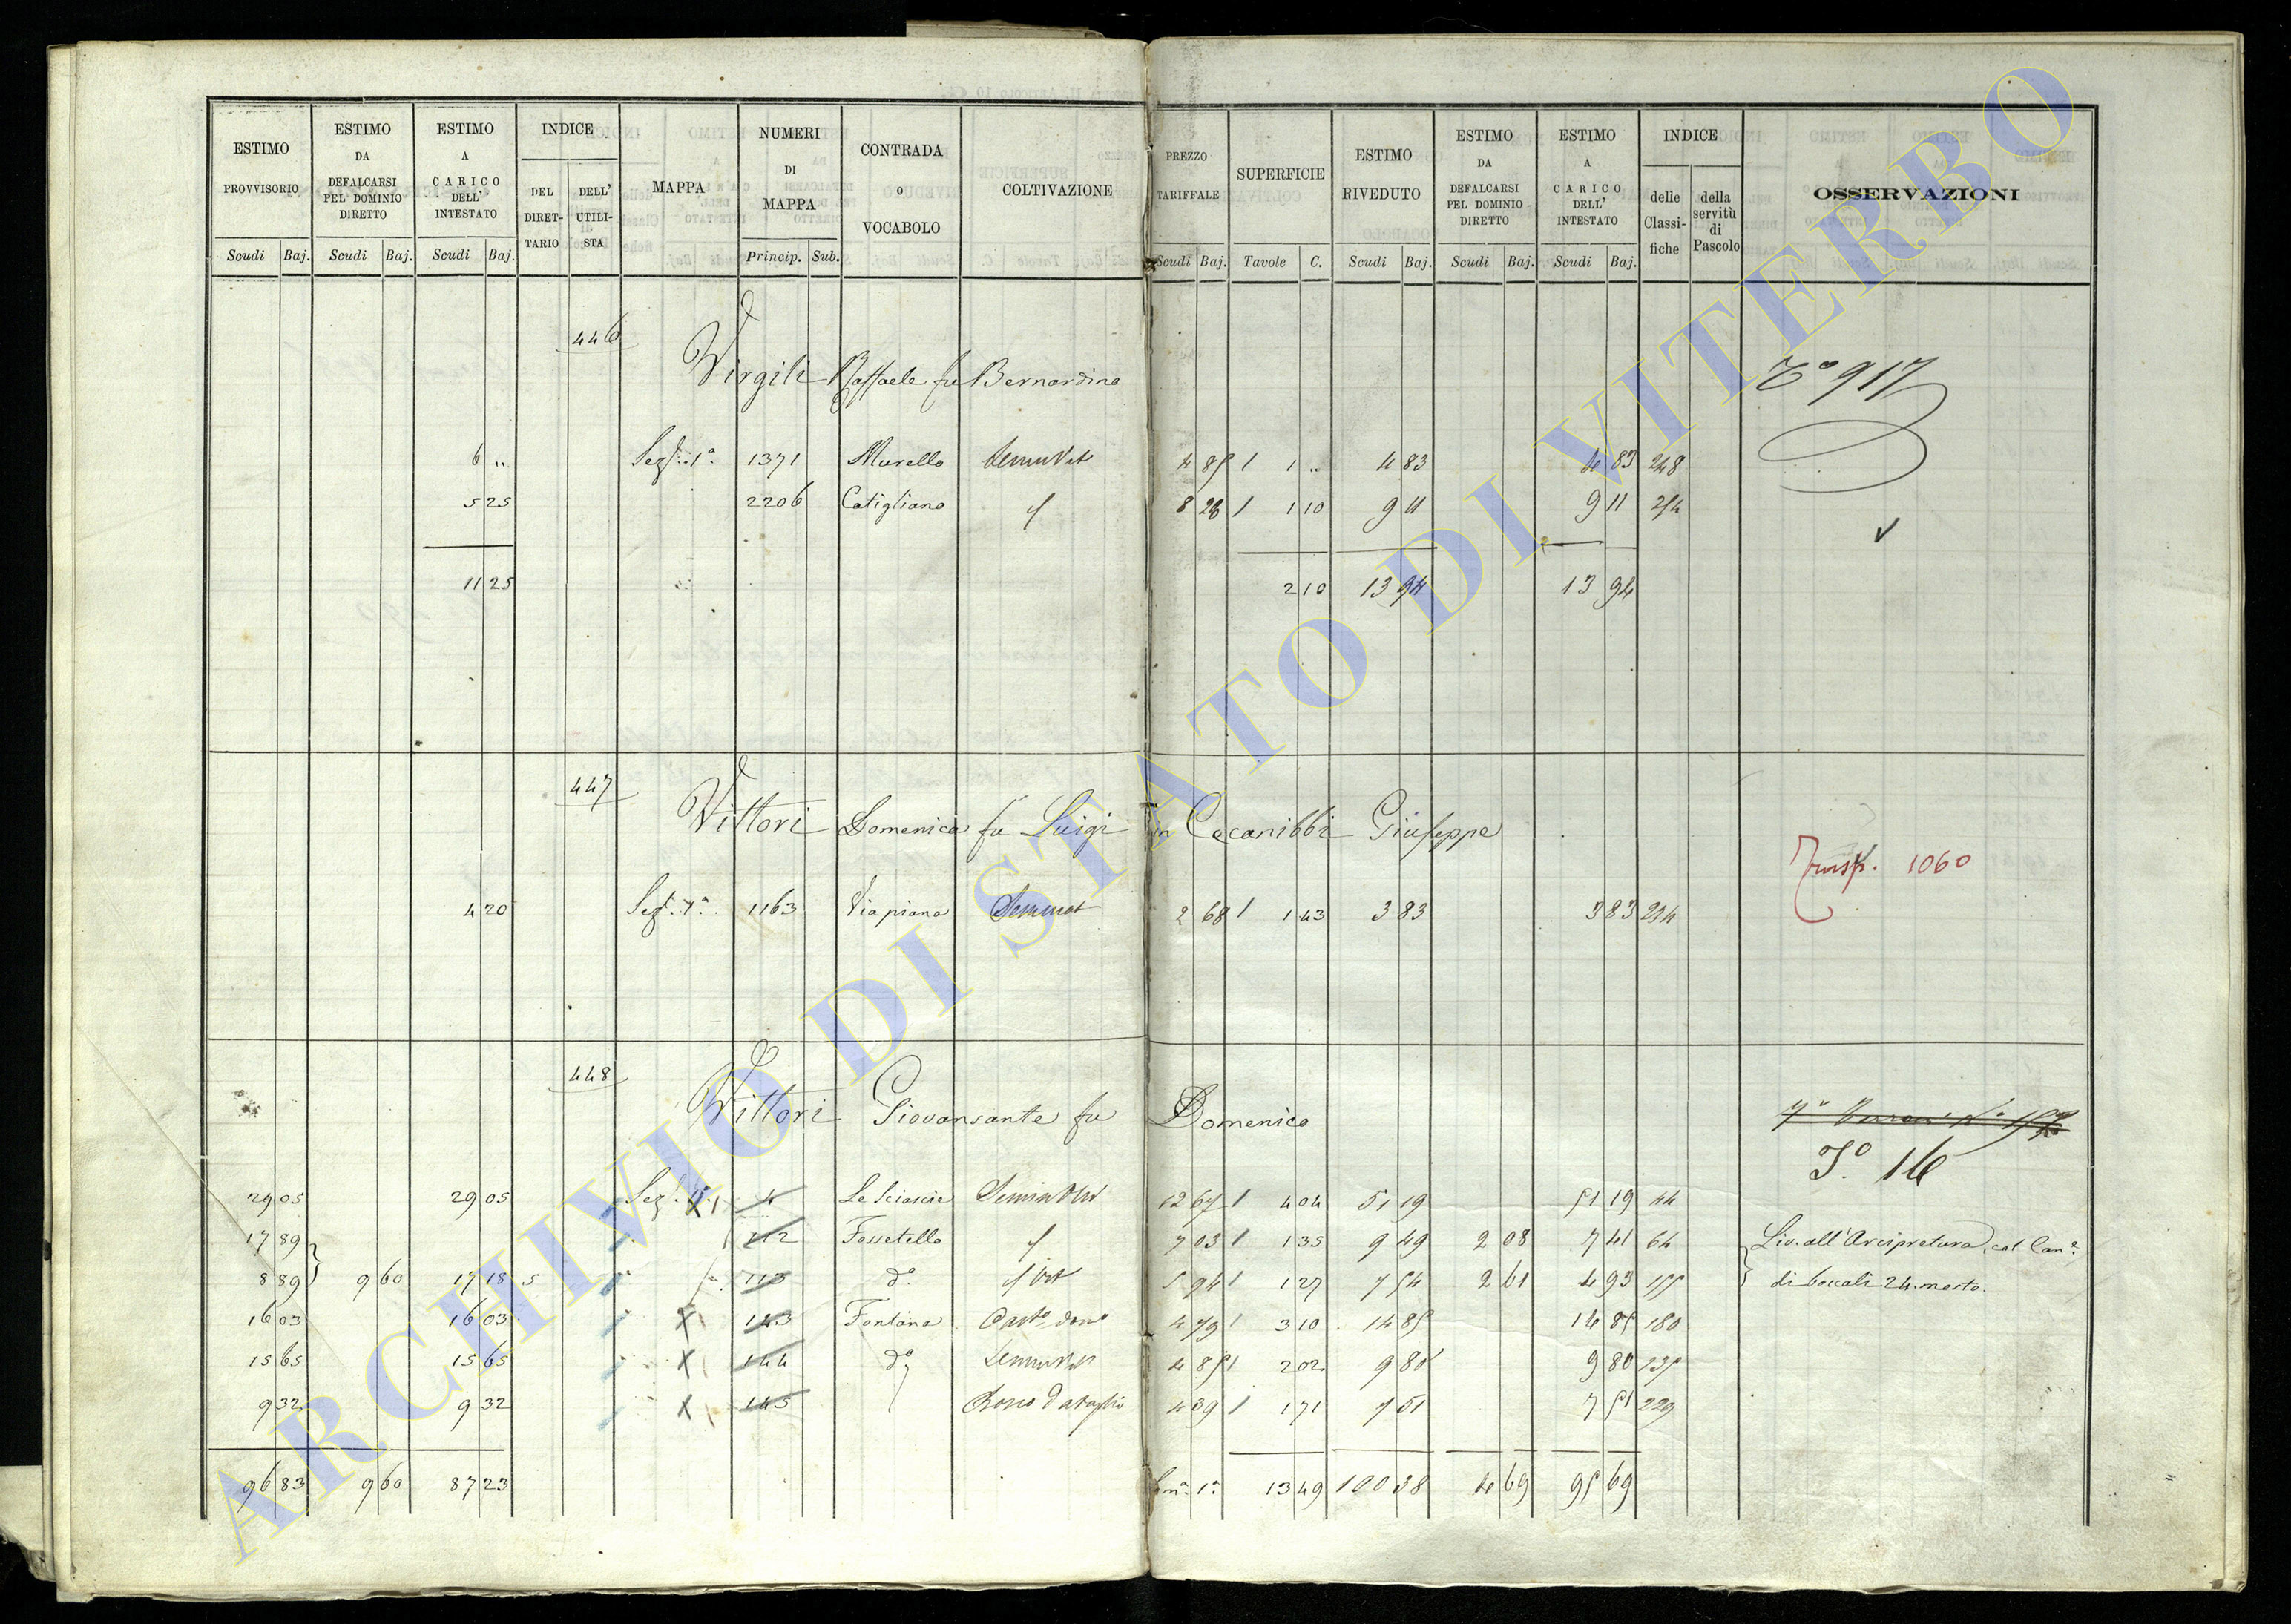 ESTIMO PROVVISORIO Scudi Baj.
ESTIMO DA DEFALCARSI PEL DOMINIO DIRETTO Scudi Baj.
ESTIMO A CARICO DELL' INTESTATO Scudi Baj.
INDICE DEL DIRETTARIO DELL' UTILISTA
MAPPA
NUMERI DI MAPPA Princip. Sub.
CONTRADA o VOCABOLO
COLTIVAZIONE
PREZZO TARIFFALE Scudi Baj.
SUPERFICIE Tavole C.
ESTIMO RIVEDUTO Scudi Baj.
ESTIMO DA DEFALCARSI PEL DOMINIO DIRETTO Scudi Baj.
ESTIMO A CARICO DELL' INTESTATO Scudi Baj.
INDICE delle Classifiche della servitù di Pascolo
OSSERVAZIONI
446
Virgili Raffaele fu Bernardino
917
6 " Sez. 1ª 1371 Murello 4 85 1 1 " 4 83 4 83 248
5 25 2206 Catigliano 8 28 1 1 10 9 11 9 11
11 25 2 10 13 94 13 94
447
Vittori Domenica fu Luigi in Cecanibbi Giuseppe
Trasp. 1060
4 20 Sez. 1ª 1163 Viapiana Seminat 2 68 1 1 43 3 83 3 83 234
448
Vittori Giovansante fu Domenico
Tº 16
29 05 29 05 4 Le Sciascie 12 67 1 4 04 51 19 51 19 44
17 89 112 Fossetello 7 03 1 1 35 9 49 2 08 7 41 64 Liv. all' Arcipretura, col Canº
8 89 9 60 17 18 5 113 dº 5 94 1 1 27 7 54 2 61 4 93 di boccali 24 mosto.
16 03 16 03 143 Fontana 4 79 1 3 10 14 85 14 85 180
15 65 15 65 144 dº 4 85 1 2 02 9 80 9 80
9 32 9 32 145 4 39 1 1 71 7 51 7 51 229
96 83 9 60 87 23 13 49 100 38 4 69 95 69
ARCHIVIO DI STATO DI VITERBO